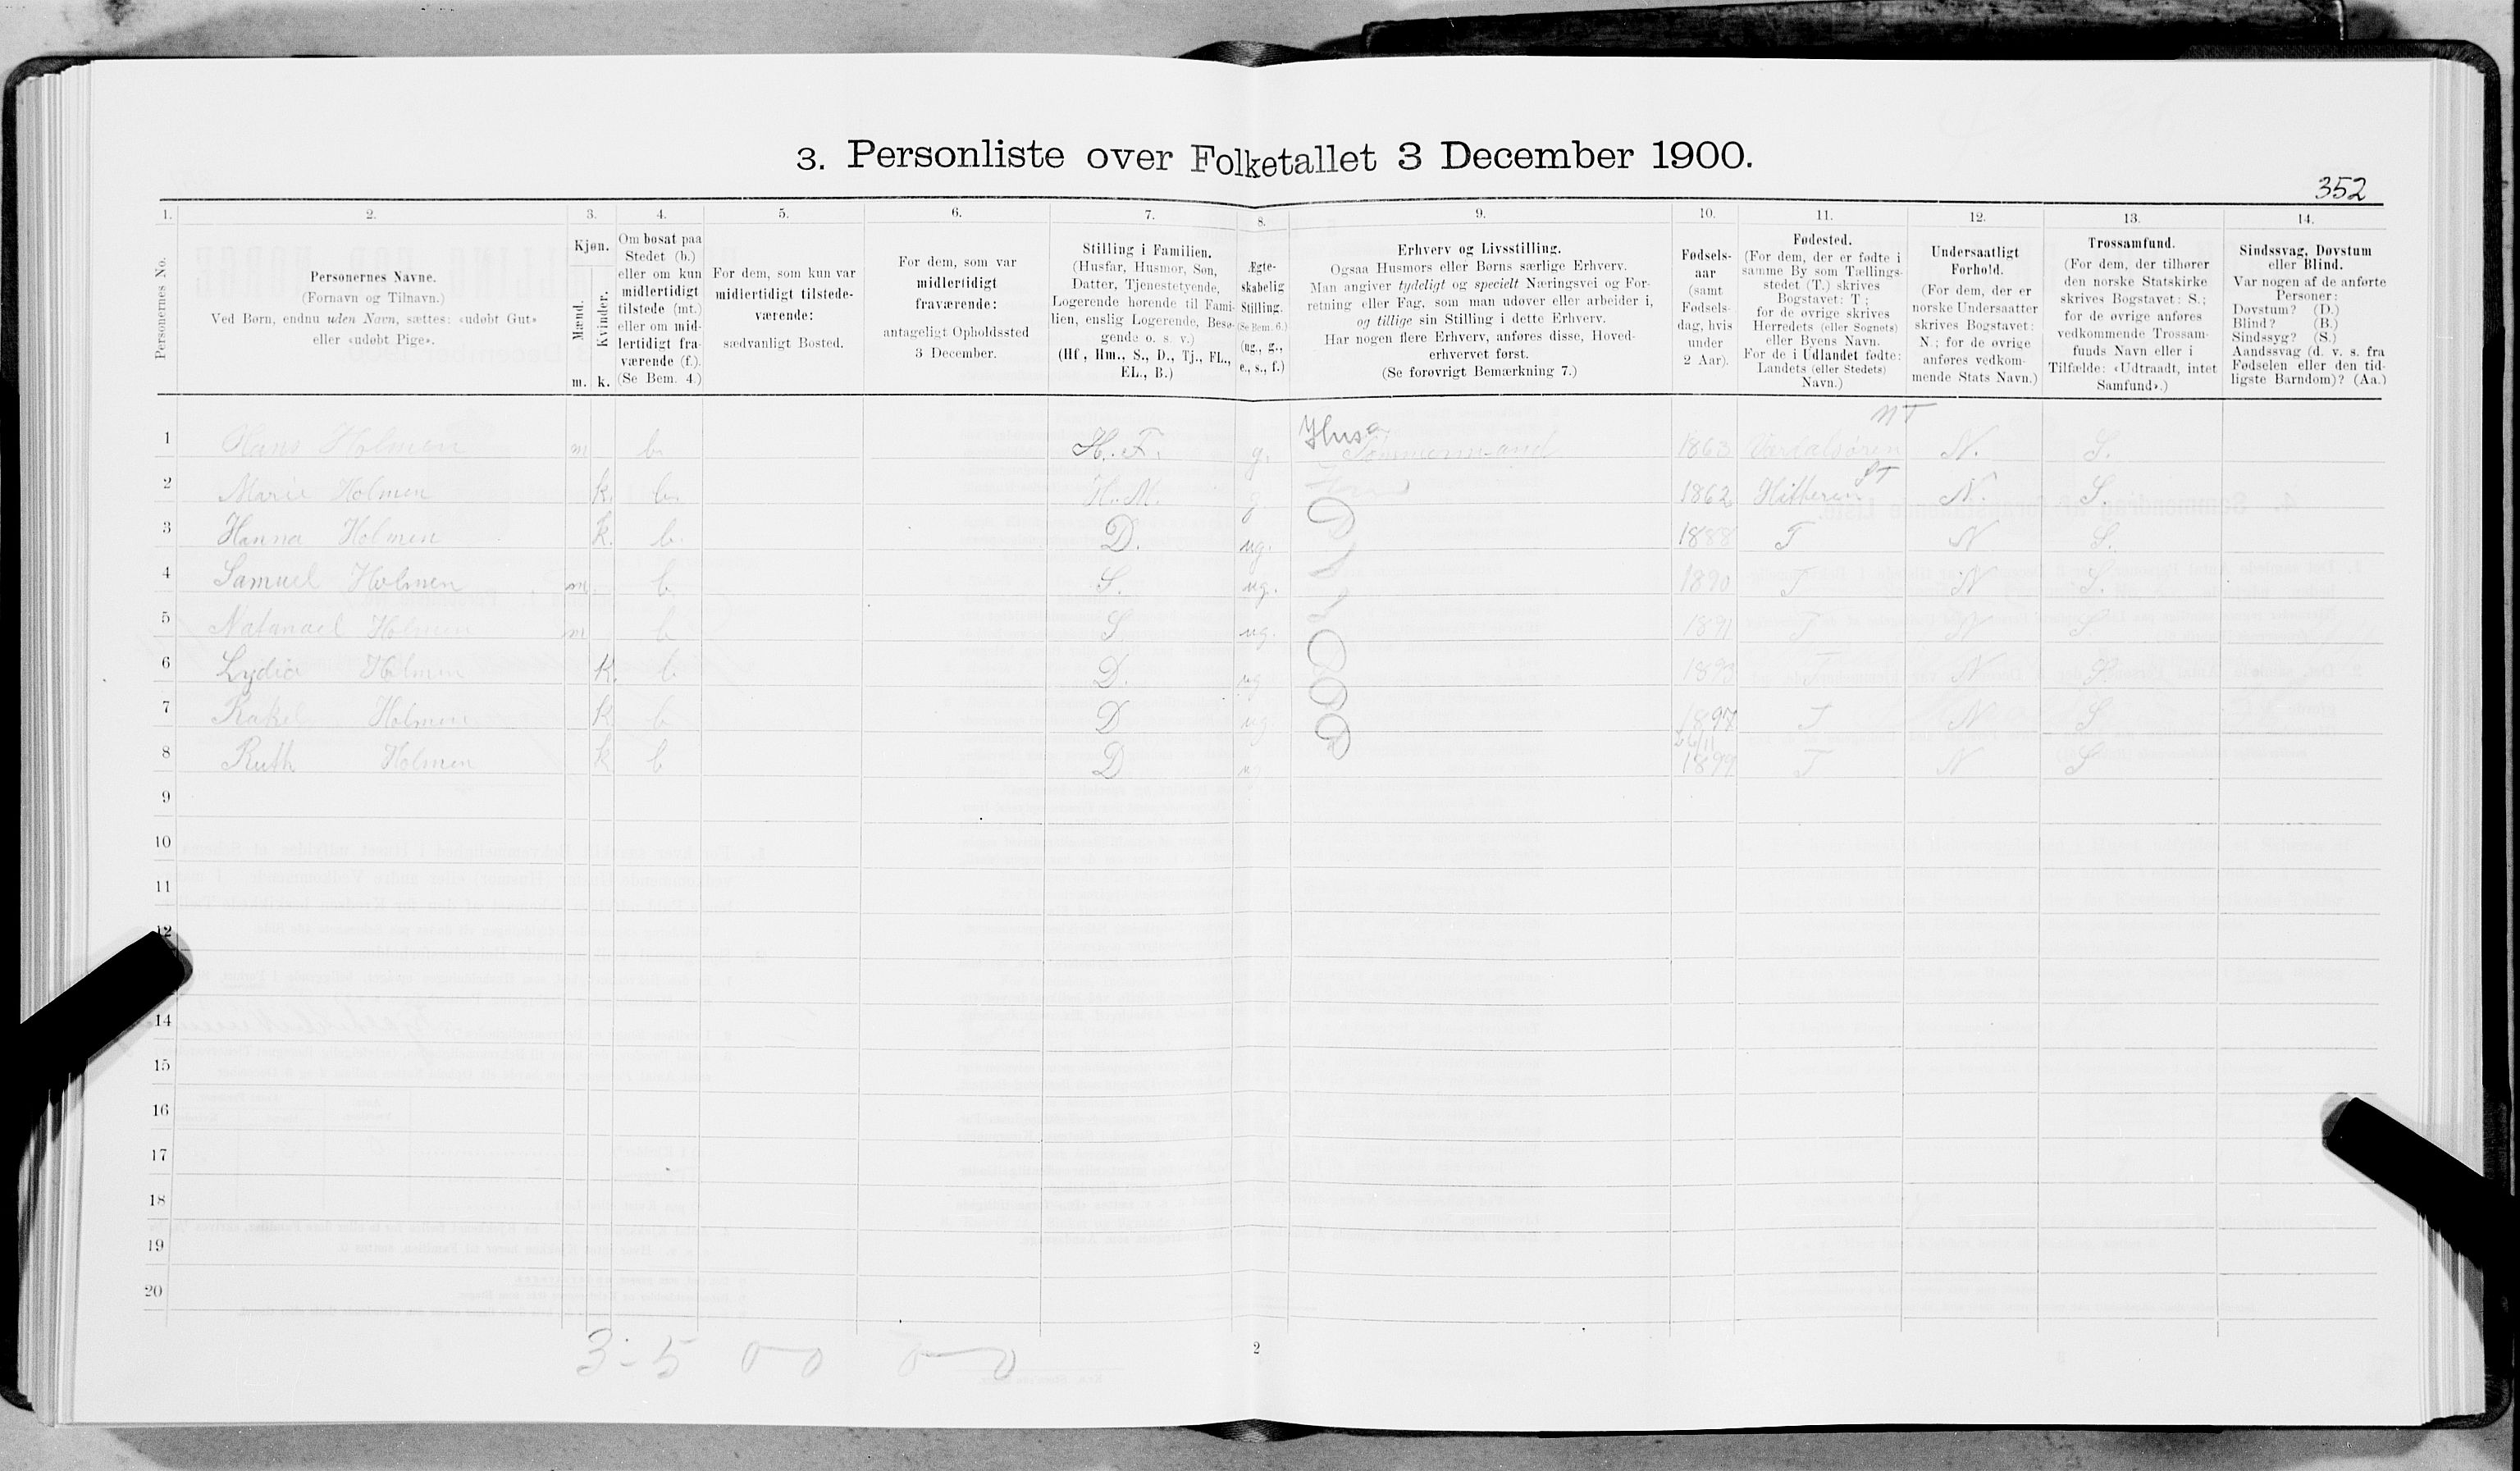 3. Personliste over Folketallet 3 December 1900.
352
1. 2. 3. 4. 5. 6. 7. 8. 9. 10. 11. 12. 13. 14.
Personernes No.
Personernes Navne.
(Fornavn og Tilnavn.)
Ved Børn, endnu uden Navn, sættes: «udøbt Gut»
eller «udøbt Pige».
Kjøn.
Mænd.
Kvinder.
m. k.
Om bosat paa
Stedet (b.)
eller om kun
midlertidigt
tilstede (mt.)
eller om mid-
lertidigt fra-
værende (f.).
(Se Bem. 4.)
For dem, som kun var
midlertidigt tilstede-
værende:
sædvanligt Bosted.
For dem, som var
midlertidigt
fraværende:
antageligt Opholdssted
3 December.
Stilling i Familien.
(Husfar, Husmor, Søn,
Datter, Tjenestetyende,
Logerende hørende til Fami-
lien, enslig Logerende, Besø-
gende o. s. v.)
(Hf., Hm., S., D., Tj., FL.,
EL., B.)
Ægte-
skabelig
Stilling.
(Se Bem. 6.)
(ug., g.,
e., s., f.)
Erhverv og Livsstilling.
Ogsaa Husmors eller Børns særlige Erhverv.
Man angiver tydeligt og specielt Næringsvei og For-
retning eller Fag, som man udøver eller arbeider i,
og tillige sin Stilling i dette Erhverv.
Har nogen flere Erhverv, anføres disse, Hoved-
erhvervet først.
(Se forøvrigt Bemærkning 7.)
Fødsels-
aar
(samt
Fødsels-
dag, hvis
under
2 Aar).
Fødested.
(For dem, der er fødte i
samme By som Tællings-
stedet (T.) skrives
Bogstavet: T;
for de øvrige skrives
Herredets (eller Sognets)
eller Byens Navn.
For de i Udlandet fødte:
Landets (eller Stedets)
Navn.)
Undersaatligt
Forhold.
(For dem, der er
norske Undersaatter
skrives Bogstavet:
N.; for de øvrige
anføres vedkom-
mende Stats Navn.)
Trossamfund.
(For dem, der tilhører
den norske Statskirke
skrives Bogstavet: S.;
for de øvrige anføres
vedkommende Trossam-
funds Navn eller i
Tilfælde: «Udtraadt, intet
Samfund».)
Sindssvag, Døvstum
eller Blind.
Var nogen af de anførte
Personer:
Døvstum? (D.)
Blind? (B.)
Sindssyg? (S.)
Aandssvag (d. v. s. fra
Fødselen eller den tid-
ligste Barndom)? (Aa.)
1 Hans Holmen m b. H. F. g. Husa Tømmermand 1863 Værdalsøren NT N. S.
2 Marie Holmen k. b. H. M. g. 1862 Hitteren ST N. S.
3 Hanna Holmen k. b. D. ug. 1888 T N S.
4 Samuel Holmen m. b. S. ug. 1890 T N S.
5 Natanael Holmen m b S. ug. 1891 T N S
6 Lydia Holmen k. b. D. ug 1893 T N S.
7 Rakel Holmen k b D ug 1897 T N S
8 Ruth Holmen k b D u 26/11 1899 T N S
9
10
11
12
14
15
16
17
18
19
20
3-5 0-0 0-0
2